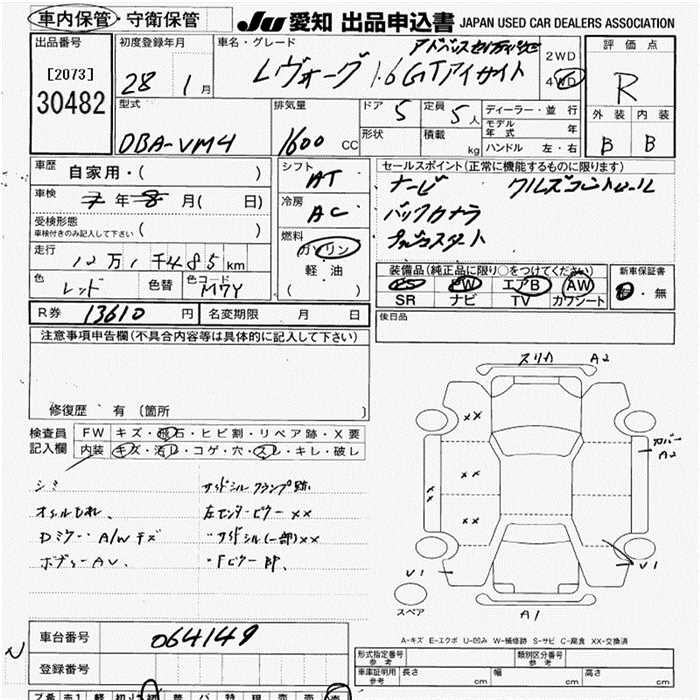 車内保管・守衛保管
JU 愛知 出品申込書 JAPAN USED CAR DEALERS ASSOCIATION
出品番号
[2073]
30482
初度登録年月
28 1月
車名・グレード
レヴォーグ 1.6GTアイサイト
2WD
4WD
評価点
R
外装 内装
B B
型式
DBA-VM4
排気量
1600 CC
ドア 5
定員 5人
形状
積載 kg
ディーラー・並行
モデル年式 年
ハンドル 左・右
車歴 自家用・( )
車検 7年8月( 日)
受検形態
車検付きのみ記入して下さい ( )
走行 12万1千485km
色 レッド 色替 色コード M7Y
シフト AT
冷房 AC
燃料 ガソリン
軽油
( )
セールスポイント(正常に機能するものに限ります)
ナービ クルズコントロール
バックカメラ
プッシュスタート
装備品(純正品に限り○をつけてください)
PS PW エアB AW
SR ナビ TV カワシート
新車保証書
有・無
R券 13610円 名変期限 月 日
後日品
注意事項申告欄(不具合内容等は具体的に記入して下さい)
修復歴 有(箇所 )
検査員記入欄
FW キズ・飛石・ヒビ割・リペア跡・X要
内装 キズ・汚レ・コゲ・穴・スレ・キレ・破レ
シミ サイドシルクランプ跡
オイルもれ 左センターピラーxx
Dミラー・A/Wキズ ・サイドシル(一部)xx
ボディーAU.
スリカ A2
xx
xx
xx
xx
カバー A2
U1
U1
A1
スペア
A-キズ E-エクボ U-凹み W-補修跡 S-サビ C-腐食 XX-交換済
車台番号 064149
登録番号
型式指定番号 参考
類別区分番号 参考
車庫証明用 参考 長さ cm 幅 cm 高さ cm